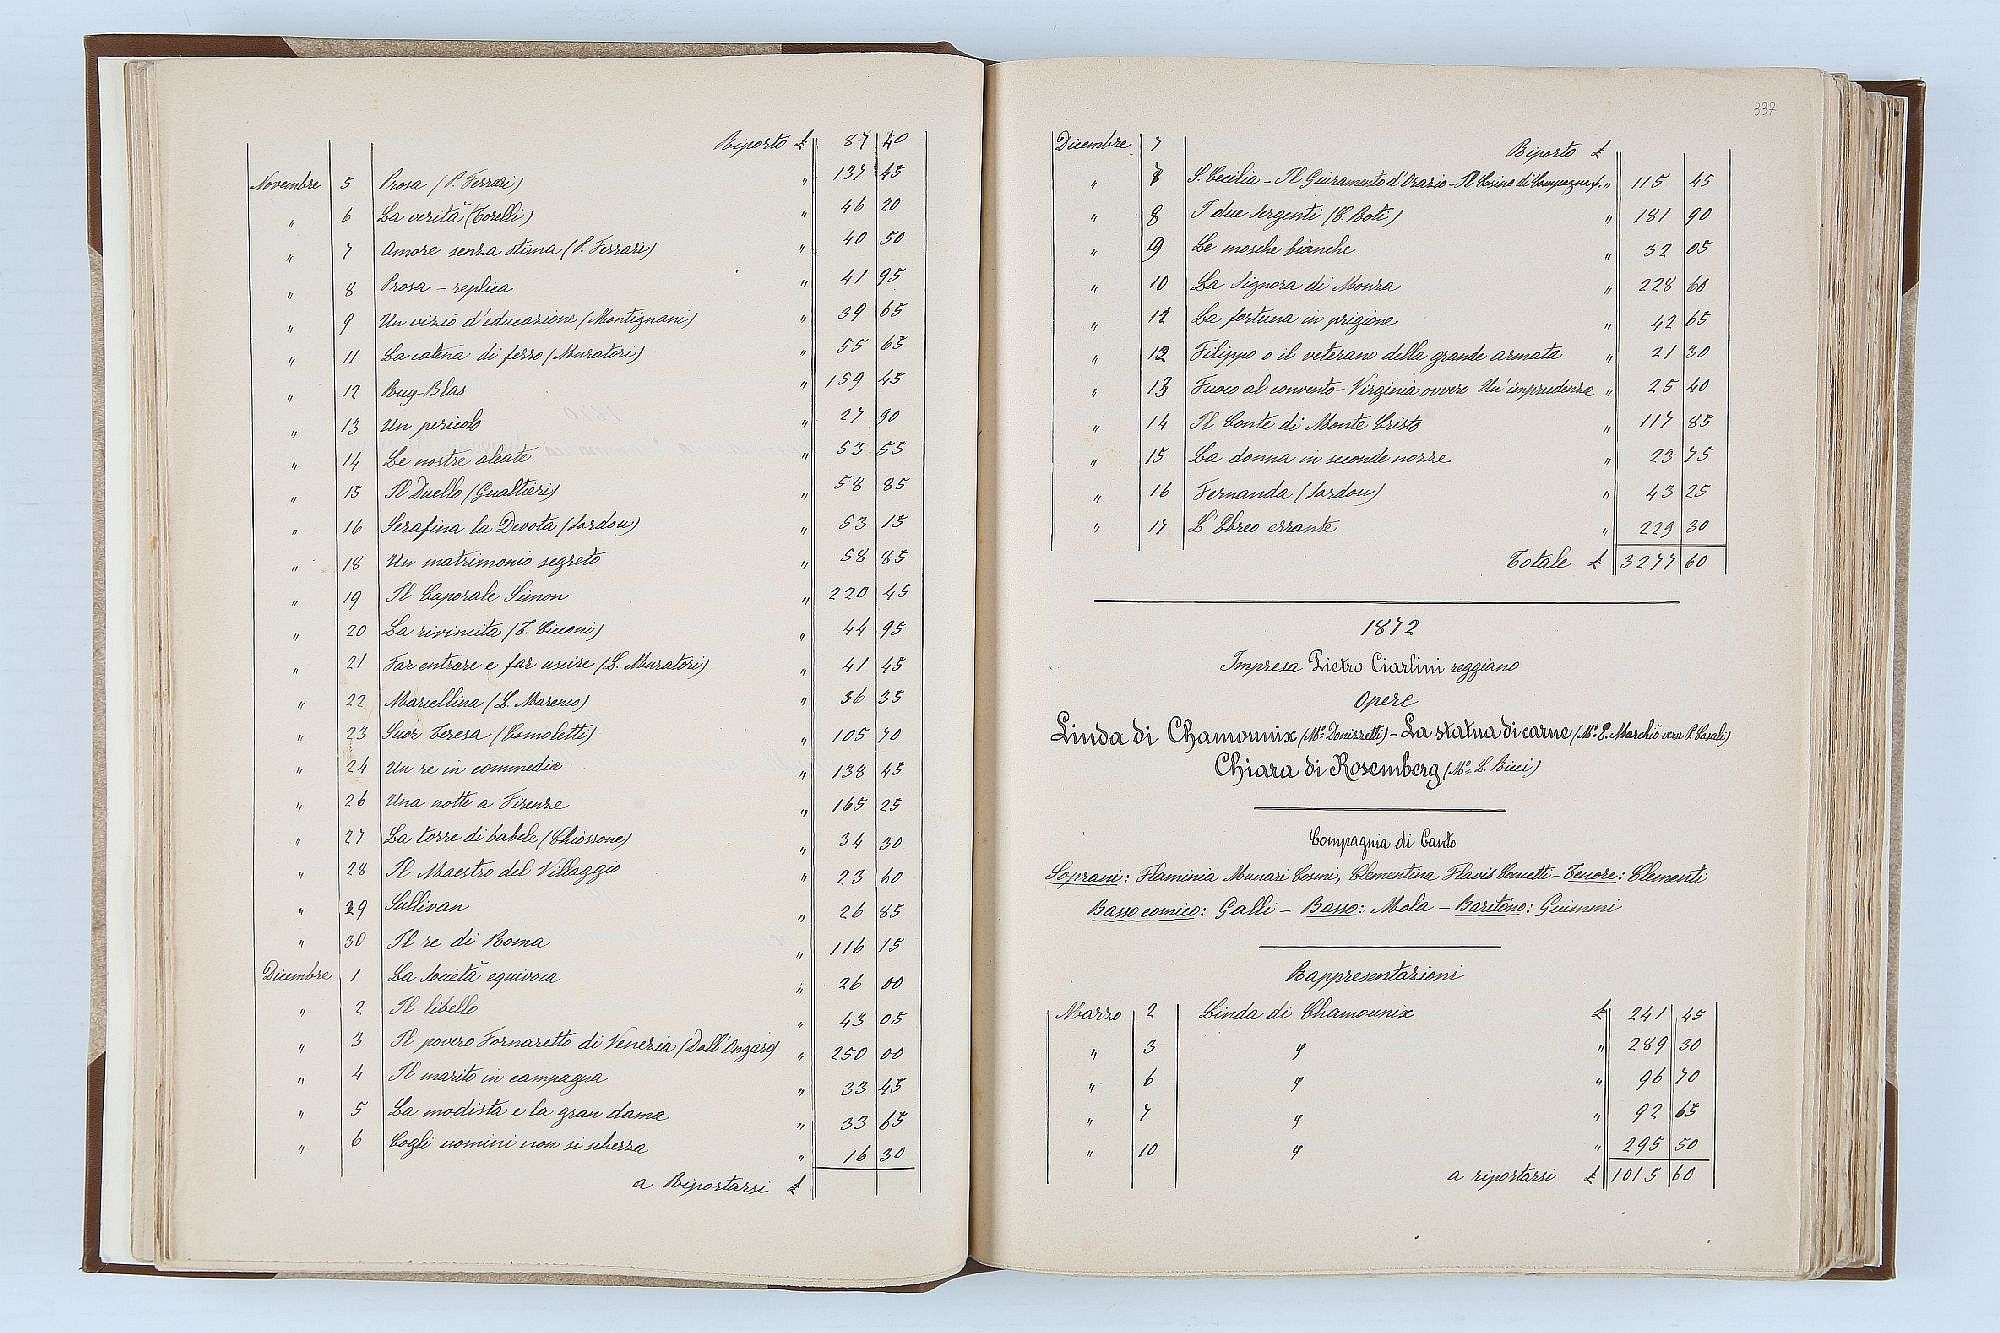 Riporto £ 87 40
Novembre 5 Prosa (P. Ferrari) " 137 45
" 6 La verità (Torelli) " 46 20
" 7 Amore senza stima (P. Ferrari) " 40 50
" 8 Prosa - replica " 41 95
" 9 Un vizio d'educazione (Montignani) " 39 65
" 11 La catena di ferro (Muratori) " 55 65
" 12 Ruy-Blas " 159 45
" 13 Un pericolo " 27 90
" 14 Le nostre aleate " 53 55
" 15 Il Duello (Gualtieri) " 58 85
" 16 Serafina la Devota (Sardou) " 53 15
" 18 Un matrimonio segreto " 58 85
" 19 Il Caporale Simon " 220 45
" 20 La rivincita (T. Ciconi) " 44 95
" 21 Far entrare e far uscire (L. Muratori) " 41 45
" 22 Marcellina (L. Marenco) " 36 35
" 23 Suor Teresa (Camoletti) " 105 70
" 24 Un re in commedia " 138 45
" 26 Una notte a Firenze " 165 25
" 27 La torre di babele (Chiossone) " 34 30
" 28 Il Maestro del Villaggio " 23 60
" 29 Sullivan " 26 85
" 30 Il re di Roma " 116 15
Dicembre 1 La società equivoca " 26 00
" 2 Il libello " 43 05
" 3 Il povero Fornaretto di Venezia (Dall'Ongaro) " 250 00
" 4 Il marito in campagna " 33 45
" 5 La modista e la gran dama " 33 65
" 6 Cogli uomini non si scherza " 16 30
a Riportarsi £
337
Dicembre 7 Riporto £
" 7 S. Cecilia - Il Giuramento d'Orazio - Il Casino di Campagna " 115 45
" 8 I due Sergenti (C. Roti) " 181 90
" 9 Le mosche bianche " 32 05
" 10 La Signora di Monza " 228 60
" 11 La fortuna in prigione " 42 65
" 12 Filippo o il veterano della grande armata " 21 30
" 13 Fuoco al convento - Virginia ovvero Un'imprudenza " 25 40
" 14 Il Conte di Monte Cristo " 117 85
" 15 La donna in seconde nozze " 23 75
" 16 Fernanda (Sardou) " 43 25
" 17 L'Ebreo errante " 229 30
Totale £ 3277 60
1872
Impresa Pietro Ciarlini reggiano
Opere
Linda di Chamounix (Mo. Donizzetti) - La statua di carne (Mo. E. Marchiò R. Casali)
Chiara di Rosemberg (Mo. L. Ricci)
Compagnia di Canto
Soprani: Flaminia Munari Cosmi, Clementina Flavis Cencetti - Tenore: Clementi
Basso comico: Galli - Basso: Mola - Baritono: Guimmi
Rappresentazioni
Marzo 2 Linda di Chamounix £ 241 45
" 3 " " 289 30
" 6 " " 96 70
" 7 " " 92 65
" 10 " " 295 50
a riportarsi £ 1015 60